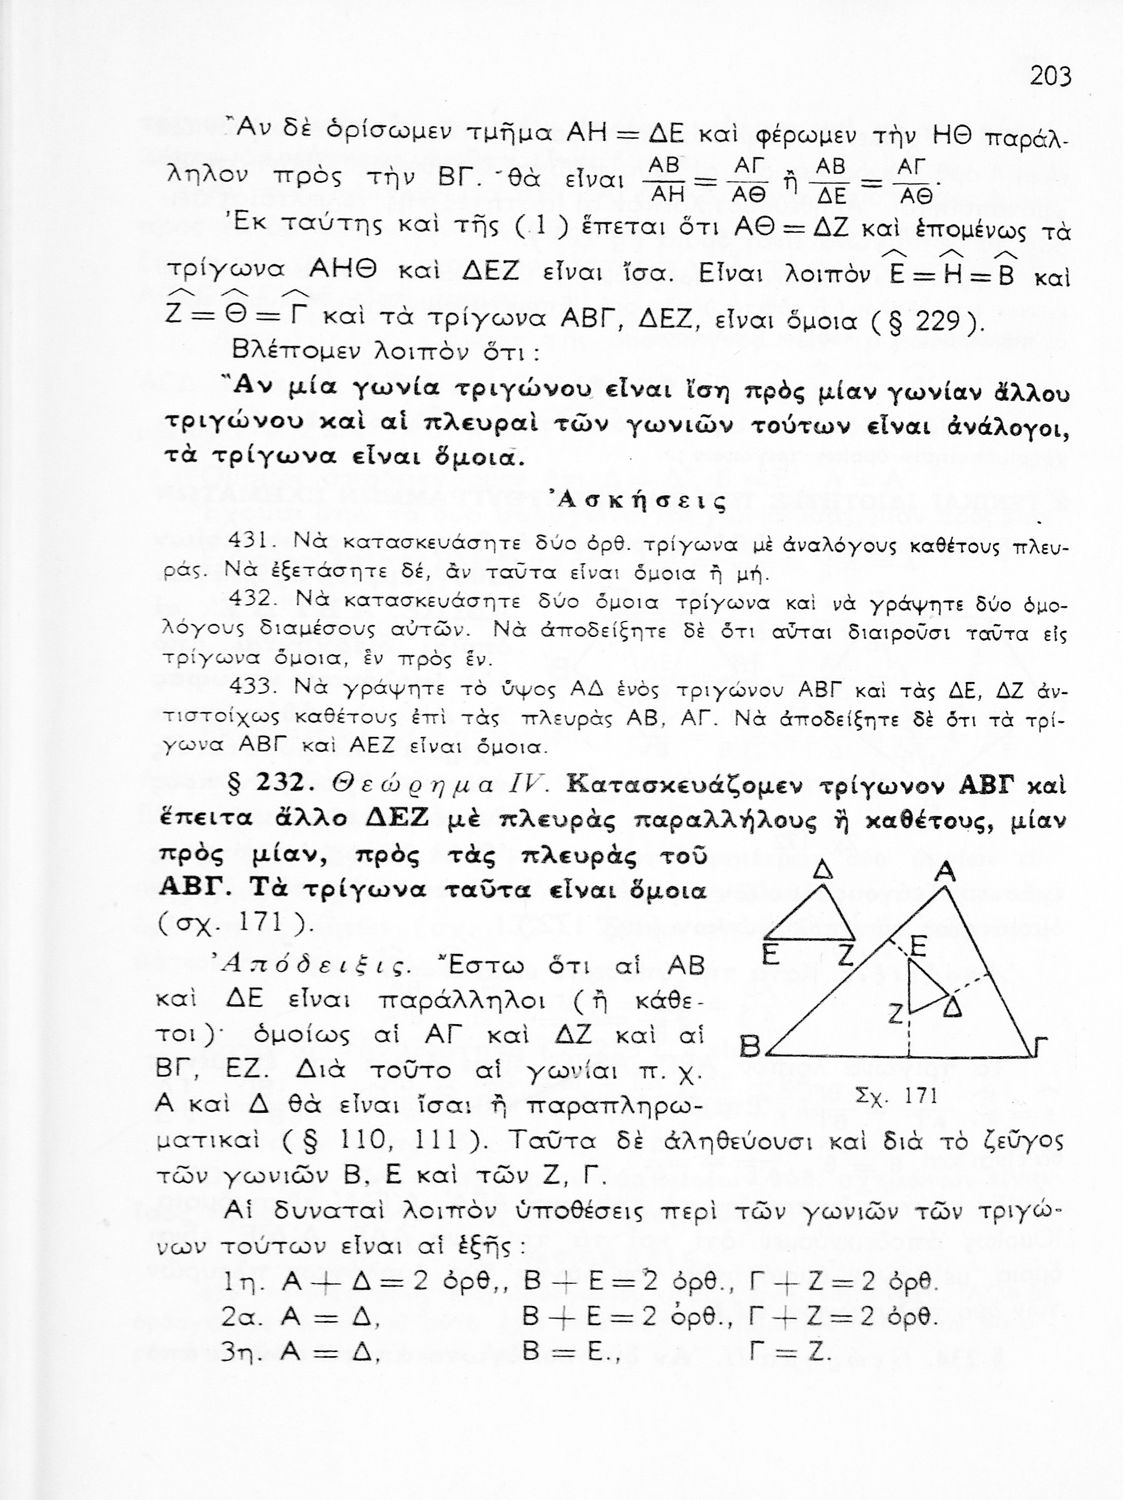 203
Ἂν δὲ ὁρίσωμεν τμῆμα ΑΗ = ΔΕ καὶ φέρωμεν τὴν ΗΘ παράλ-
ληλον πρὸς τὴν ΒΓ. θὰ εἶναι ΑΒ/ΑΗ = ΑΓ/ΑΘ ἢ ΑΒ/ΔΕ = ΑΓ/ΑΘ.
Ἐκ ταύτης καὶ τῆς ( 1 ) ἕπεται ὅτι ΑΘ = ΔΖ καὶ ἑπομένως τὰ
τρίγωνα ΑΗΘ καὶ ΔΕΖ εἶναι ἴσα. Εἶναι λοιπὸν Ε̂ = Η̂ = Β̂ καὶ
Ζ̂ = Θ̂ = Γ̂ καὶ τὰ τρίγωνα ΑΒΓ, ΔΕΖ, εἶναι ὅμοια ( § 229 ).
Βλέπομεν λοιπὸν ὅτι :
Ἂν μία γωνία τριγώνου εἶναι ἴση πρὸς μίαν γωνίαν ἄλλου
τριγώνου καὶ αἱ πλευραὶ τῶν γωνιῶν τούτων εἶναι ἀνάλογοι,
τὰ τρίγωνα εἶναι ὅμοια.
Ἀσκήσεις
431. Νὰ κατασκευάσητε δύο ὀρθ. τρίγωνα μὲ ἀναλόγους καθέτους πλευ-
ράς. Νὰ ἐξετάσητε δέ, ἂν ταῦτα εἶναι ὅμοια ἢ μή.
432. Νὰ κατασκευάσητε δύο ὅμοια τρίγωνα καὶ νὰ γράψητε δύο ὁμο-
λόγους διαμέσους αὐτῶν. Νὰ ἀποδείξητε δὲ ὅτι αὗται διαιροῦσι ταῦτα εἰς
τρίγωνα ὅμοια, ἓν πρὸς ἕν.
433. Νὰ γράψητε τὸ ὕψος ΑΔ ἑνὸς τριγώνου ΑΒΓ καὶ τὰς ΔΕ, ΔΖ ἀν-
τιστοίχως καθέτους ἐπὶ τὰς πλευρὰς ΑΒ, ΑΓ. Νὰ ἀποδείξητε δὲ ὅτι τὰ τρί-
γωνα ΑΒΓ καὶ ΑΕΖ εἶναι ὅμοια.
§ 232. Θεώρημα IV. Κατασκευάζομεν τρίγωνον ΑΒΓ καὶ
ἔπειτα ἄλλο ΔΕΖ μὲ πλευρὰς παραλλήλους ἢ καθέτους, μίαν
πρὸς μίαν, πρὸς τὰς πλευρὰς τοῦ
ΑΒΓ. Τὰ τρίγωνα ταῦτα εἶναι ὅμοια
( σχ. 171 ).
Ἀπόδειξις. Ἔστω ὅτι αἱ ΑΒ
καὶ ΔΕ εἶναι παράλληλοι ( ἢ κάθε-
τοι )· ὁμοίως αἱ ΑΓ καὶ ΔΖ καὶ αἱ
ΒΓ, ΕΖ. Διὰ τοῦτο αἱ γωνίαι π. χ.
Α καὶ Δ θὰ εἶναι ἴσαι ἢ παραπληρω-
ματικαὶ ( § 110, 111 ). Ταῦτα δὲ ἀληθεύουσι καὶ διὰ τὸ ζεῦγος
τῶν γωνιῶν Β, Ε καὶ τῶν Ζ, Γ.
Αἱ δυναταὶ λοιπὸν ὑποθέσεις περὶ τῶν γωνιῶν τῶν τριγώ-
νων τούτων εἶναι αἱ ἑξῆς :
1η. Α + Δ = 2 ὀρθ., Β + Ε = 2 ὀρθ., Γ + Ζ = 2 ὀρθ.
2α. Α = Δ, Β + Ε = 2 ὀρθ., Γ + Ζ = 2 ὀρθ.
3η. Α = Δ, Β = Ε., Γ = Ζ.
Δ Α
Ε Ζ Ε
Ζ Δ
Β Γ
Σχ. 171